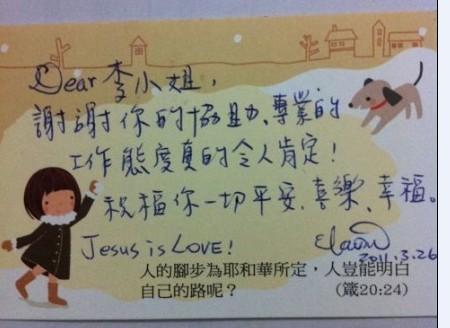 Dear 李小姐,
謝謝你的協助、專業的
工作態度真的令人肯定!
祝福你一切平安、喜樂、幸福。
Jesus is LOVE!
2011.3.26
人的腳步為耶和華所定，人豈能明白
自己的路呢？ (箴20:24)